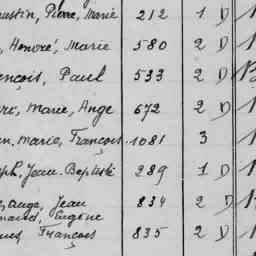 Pierre, Marie 212 1 D
, Honoré, Marie 580 2 D
ençois, Paul 533 2 D
Marie, Ange 672 2 D
n, Marie, François 1081 3
ph, Jean-Baptiste 289 1 D
Ange, Jean 834 2 D
Eugène
François 835 2 D